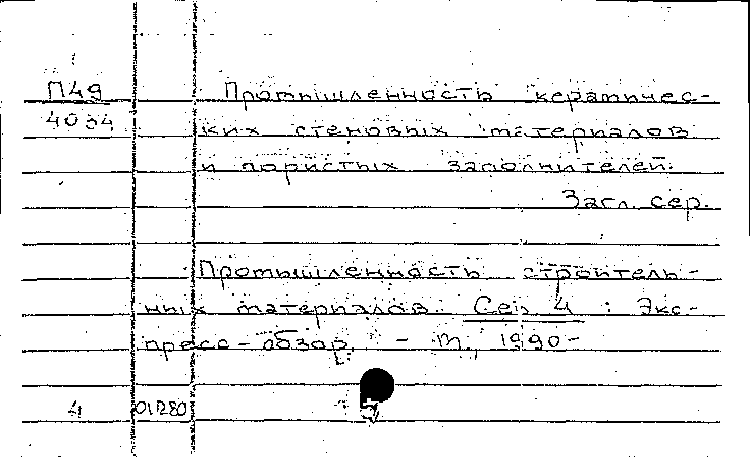 П49
4034
Промышленность керамичес-
ких стеновых материалов
и пористых заполнителей.
Загл. сер.
Промышленность строитель-
ных материалов. Сер. 4 : Экс-
пресс-обзор. - М., 1990-
4